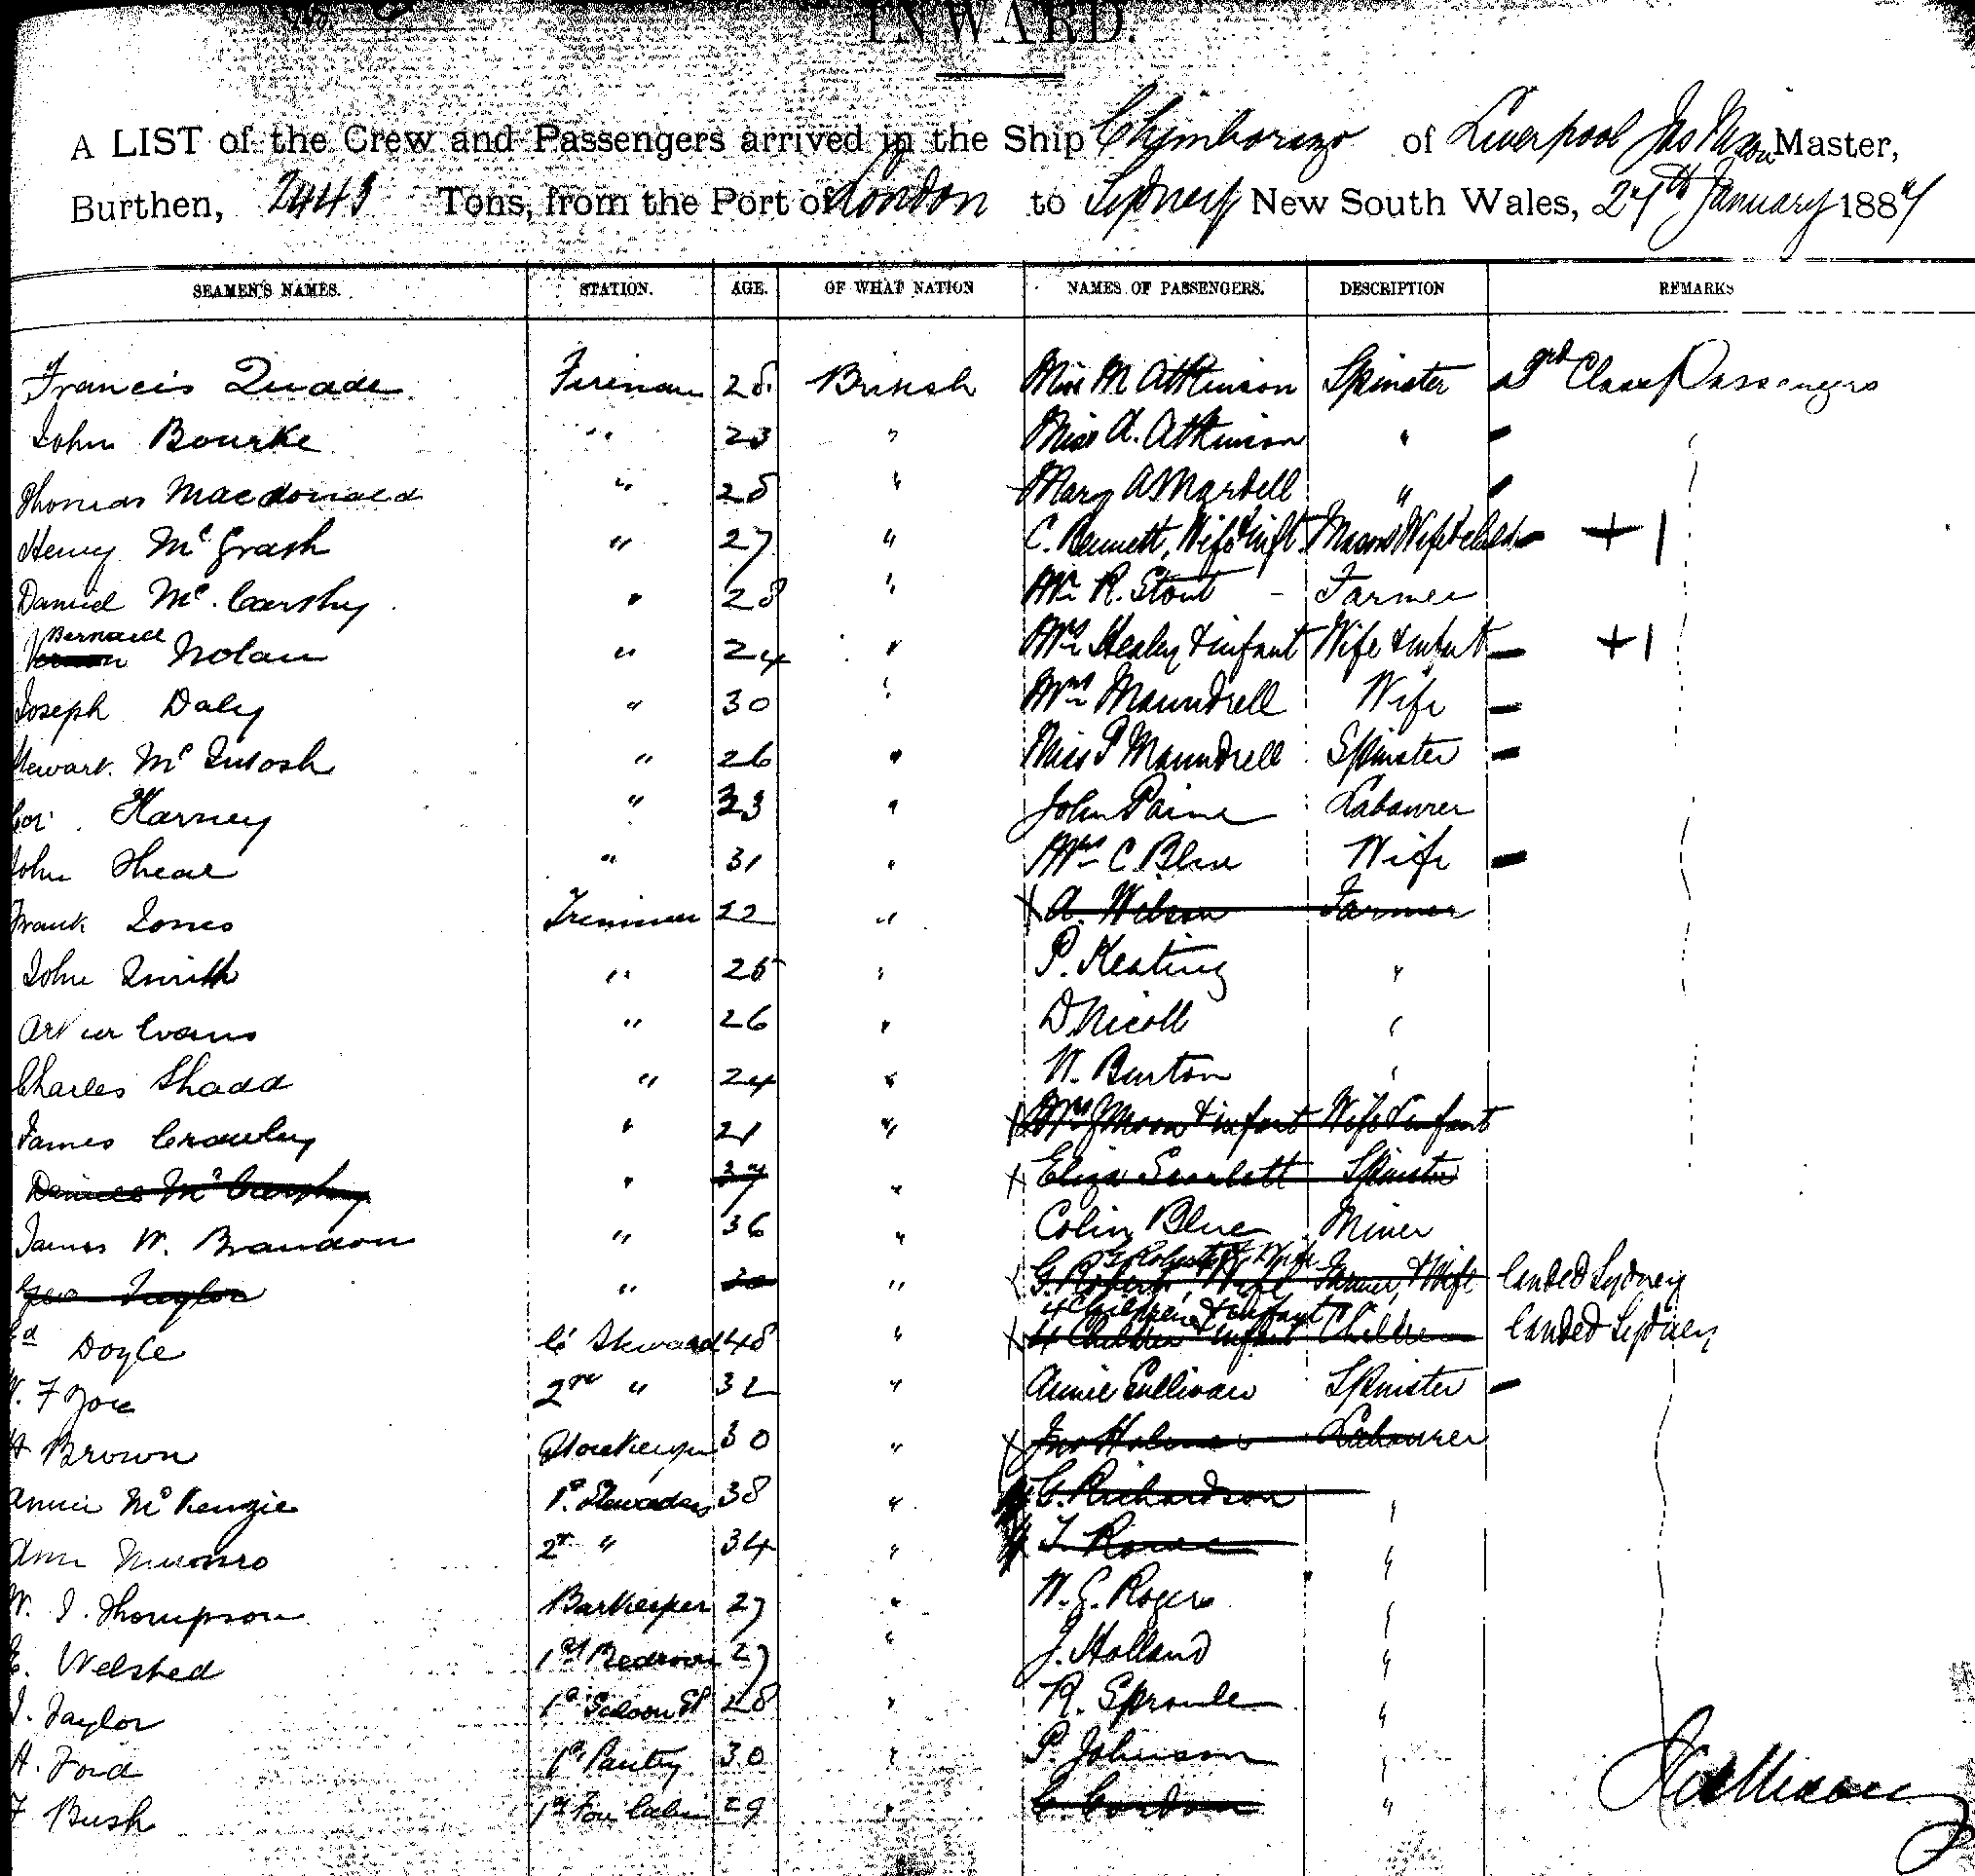 INWARD.
A LIST of the Crew and Passengers arrived in the Ship Chimborazo of Liverpool Jas Nixon Master,
Burthen, 2443 Tons, from the Port of London to Sydney New South Wales, 27th January 1884
SEAMEN'S NAMES. STATION. AGE. OF WHAT NATION NAMES OF PASSENGERS. DESCRIPTION REMARKS
Francis Quade Fireman 28 British Miss M Atkinson Spinster 3rd Class Passengers
John Bourke " 23 " Miss A. Atkinson "
Thomas Macdonald " 28 " Mary A Mardell "
Henry McGrath " 27 " C. Bennett, Wife & inft Mason Wife & child + 1
Daniel Mc.Carthy " 28 " Mr R. Stout - Farmer
Bernard
Vernon Nolan " 24 " Mrs Healey & infant Wife & infant + 1
Joseph Daly " 30 " Mrs Maundrell Wife
Stewart McIntosh " 26 " Miss P Maundrell Spinster
Cor. Harney " 23 " John Paine Labourer
John Shear " 31 " Mrs C. Blue Wife
Frank Jones Trimmer 22 " A. Wilson Farmer
John Smith " 25 " P. Keating "
Arthur Evans " 26 " D Nicoll "
Charles Shadd " 24 " W. Burton "
James Crowley " 21 " Mrs J Moon & infant Wife & infant
Dennis McCarthy " 37 " Eliza Scarlett Spinster
James W. Brandon " 36 " Colin Blue Miner
G Roberts & Wife
Geo Taylor " 20 " G. Roberts, Wife Farmer, & Wife landed Sydney
4 Children & infant
Ed Doyle Cf Steward 48 " 4 Children & infant Children landed Sydney
W. F Joce 2nd " 32 " Annie Sullivan Spinster
H Brown Storekeeper 30 " Jno Holmes Labourer
Annie McKenzie 1st Stewardess 38 " C. Richardson "
Ann Munro 2nd " 34 " T. Rowe "
W. J. Thompson Barkeeper 27 " W. G. Rogers "
E. Welsted 1st Bedroom 27 " J. Holland "
J. Taylor 1st Saloon St 28 " R. Sproule "
H. Ford 1st Pantry 30 " P. Johnson "
F Bush 1st Fore Cabin 29 " C. Cordon "